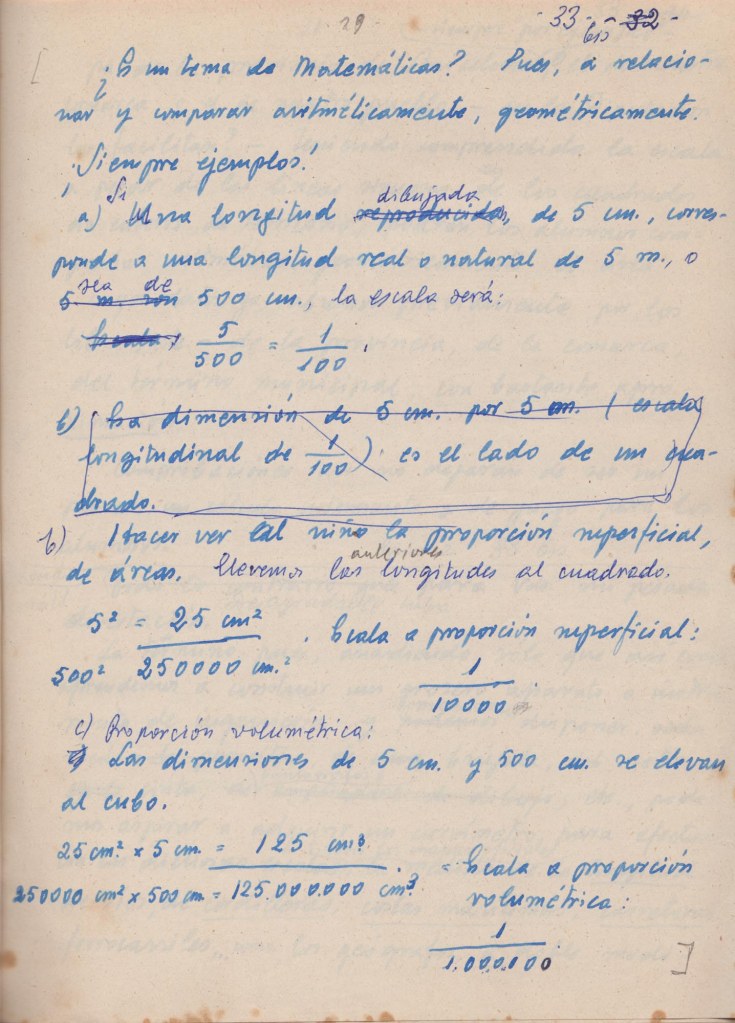 29
- 33 - bis - 32 -
[ ¿Es un tema de Matemáticas? Pues, a relacio-
nar y comparar aritméticamente, geométricamente.
¡Siempre ejemplos!
a) Si Una longitud reproducida, dibujada de 5 cm., corres-
ponde a una longitud real o natural de 5 m., o
5 m. son sea de 500 cm., la escala será:
Escala, 5/500 = 1/100.
b) La dimensión de 5 cm. por 5 cm. (escala
longitudinal de 1/100) es el lado de un cua-
drado.
b) Hacer ver al niño la proporción superficial,
de áreas. Elevemos las longitudes anteriores al cuadrado.
5² = 25 cm²
500² 250000 cm.² . Escala o proporción superficial:
1/10000.
c) Proporción volumétrica:
Las dimensiones de 5 cm. y 500 cm. se elevan
al cubo.
25 cm². x 5 cm. = 125 cm³.
250000 cm² x 500 cm = 125.000.000 cm³. = Escala o proporción
volumétrica:
1/1.000.000 ]